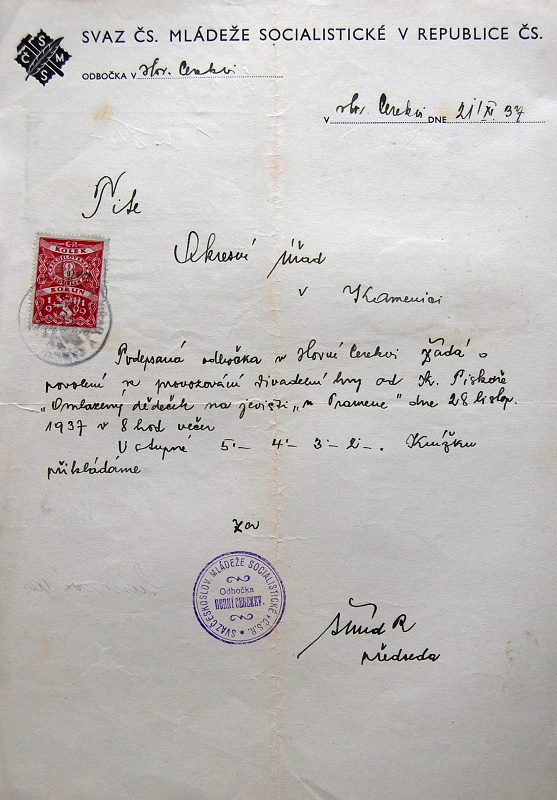 SVAZ ČS. MLÁDEŽE SOCIALISTICKÉ V REPUBLICE ČS.
Č S M S
ODBOČKA V Hor. Cerekvi
V Hor. Cerekvi DNE 21/XI. 37
Okresní úřad
v Kamenici
KOLEK
8
KORUN
Podepsaná odbočka v Horní Cerekvi žádá o
povolení k provozování divadelní hry od K. Piskoře
„Omlazený dědeček na jevišti „u Pramene" dne 28 listop.
1937 v 8 hod večer
Vstupné 5·– 4·– 3·– 2·–. Knížku
přikládáme
za
SVAZ ČESKOSLOV. MLÁDEŽE SOCIALISTICKÉ v Č.S.R.
Odbočka
HORNÍ CEREKEV.
předseda